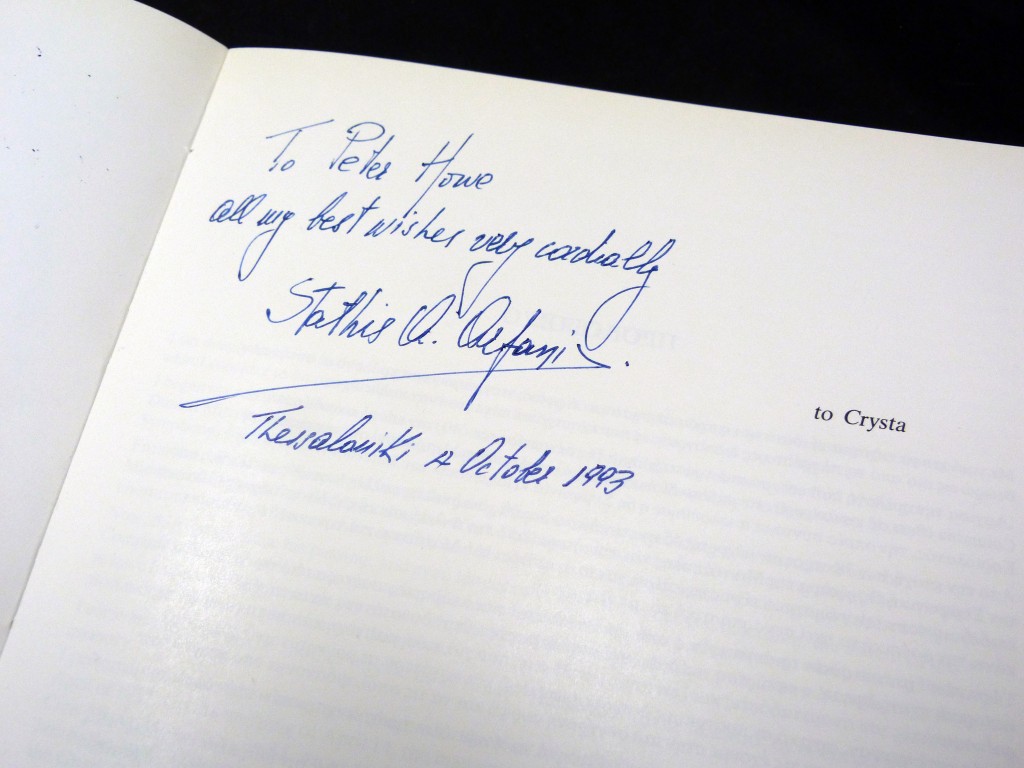 To Peter Howe
all my best wishes very cordially
Stathis A. Orfanis.
Thessaloniki 4 October 1993
to Crysta